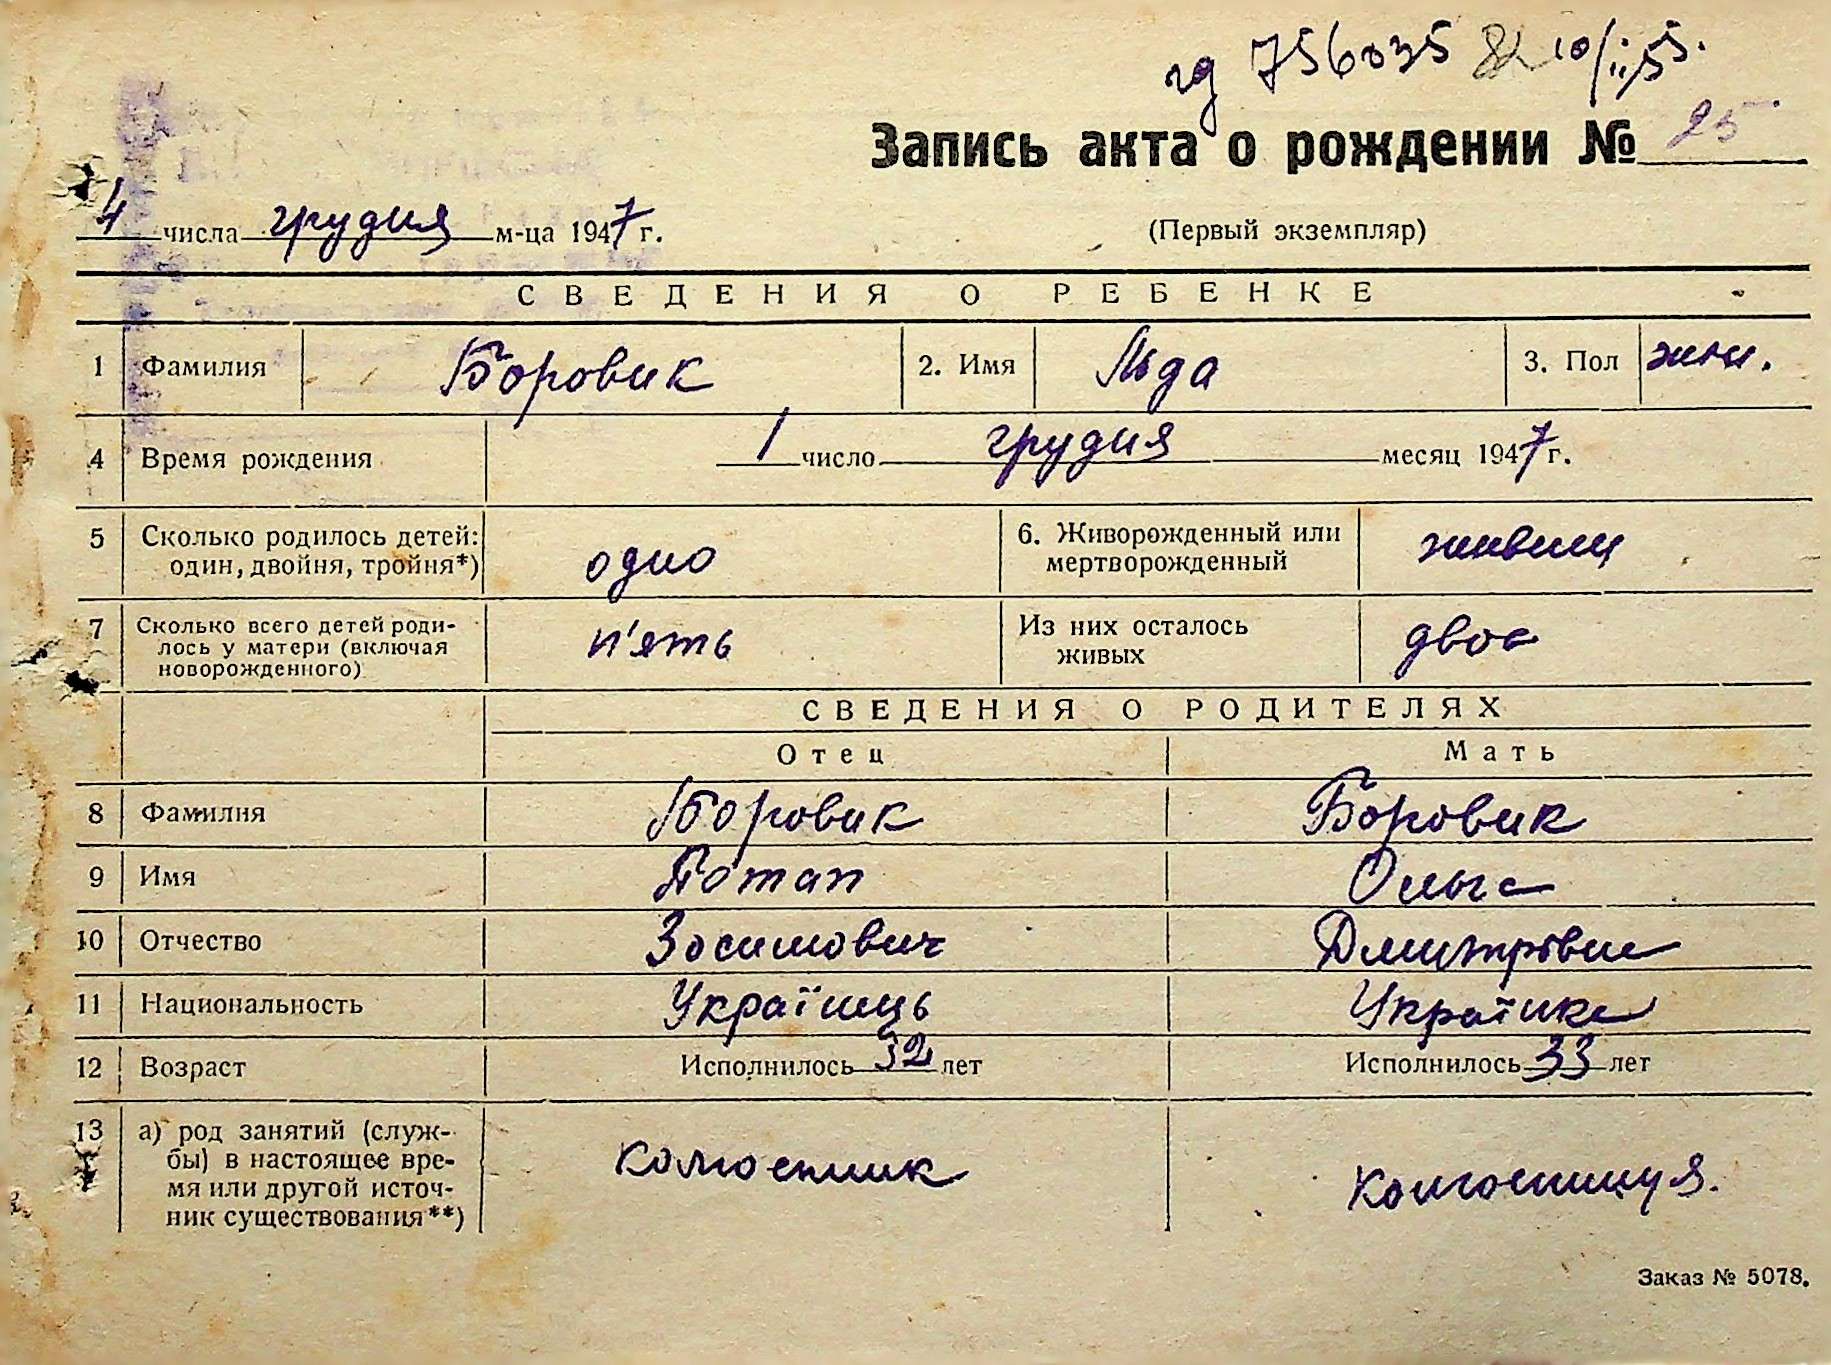 756035 10/II 55.
Запись акта о рождении № 25
4 числа грудня м-ца 1947 г.
(Первый экземпляр)
СВЕДЕНИЯ О РЕБЕНКЕ
1 Фамилия Боровик 2. Имя Ліда 3. Пол жін.
4 Время рождения 1 число грудня месяц 1947 г.
5 Сколько родилось детей: один, двойня, тройня*) одно 6. Живорожденный или мертворожденный живим
7 Сколько всего детей родилось у матери (включая новорожденного) п'ять Из них осталось живых двое
СВЕДЕНИЯ О РОДИТЕЛЯХ
Отец Мать
8 Фамилия Боровик Боровик
9 Имя Потап Ольга
10 Отчество Зосимович Дмитрівна
11 Национальность Українець Українка
12 Возраст Исполнилось 32 лет Исполнилось 33 лет
13 а) род занятий (служ-
бы) в настоящее вре-
мя или другой источ-
ник существования**) колгоспник колгоспниця.
Заказ № 5078.